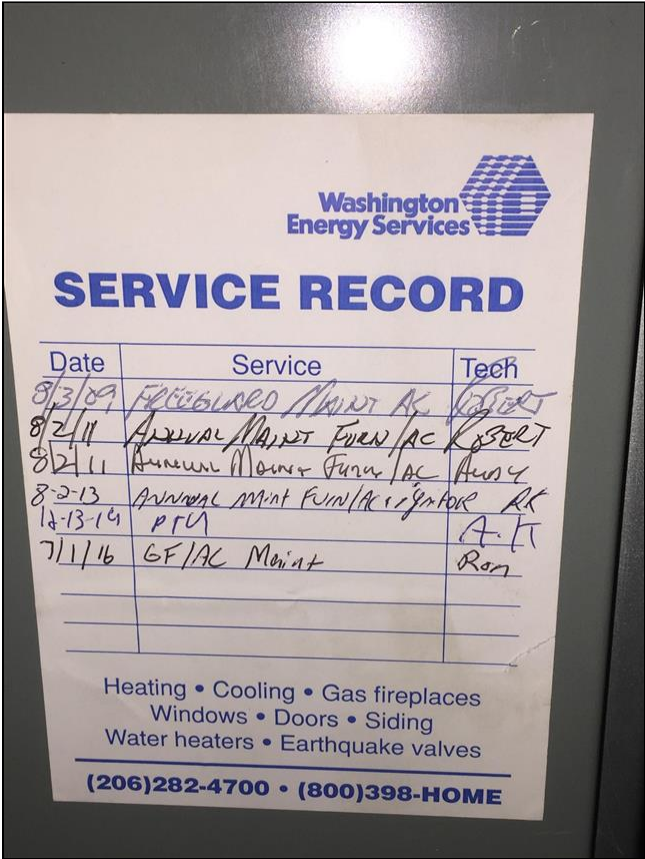 Washington
Energy Services
SERVICE RECORD
Date Service Tech
8/3/09 FREEGUARD MAINT AC ROBERT
8/2/11 ANNUAL MAINT FURN/AC ROBERT
8/2/11 Annual Maint Furn/AC Andy
8-2-13 ANNUAL Mint FURN/AC+ignitor RK
12-13-14 PTU A.K
7/1/16 GF/AC Maint Ron
Heating • Cooling • Gas fireplaces
Windows • Doors • Siding
Water heaters • Earthquake valves
(206)282-4700 • (800)398-HOME